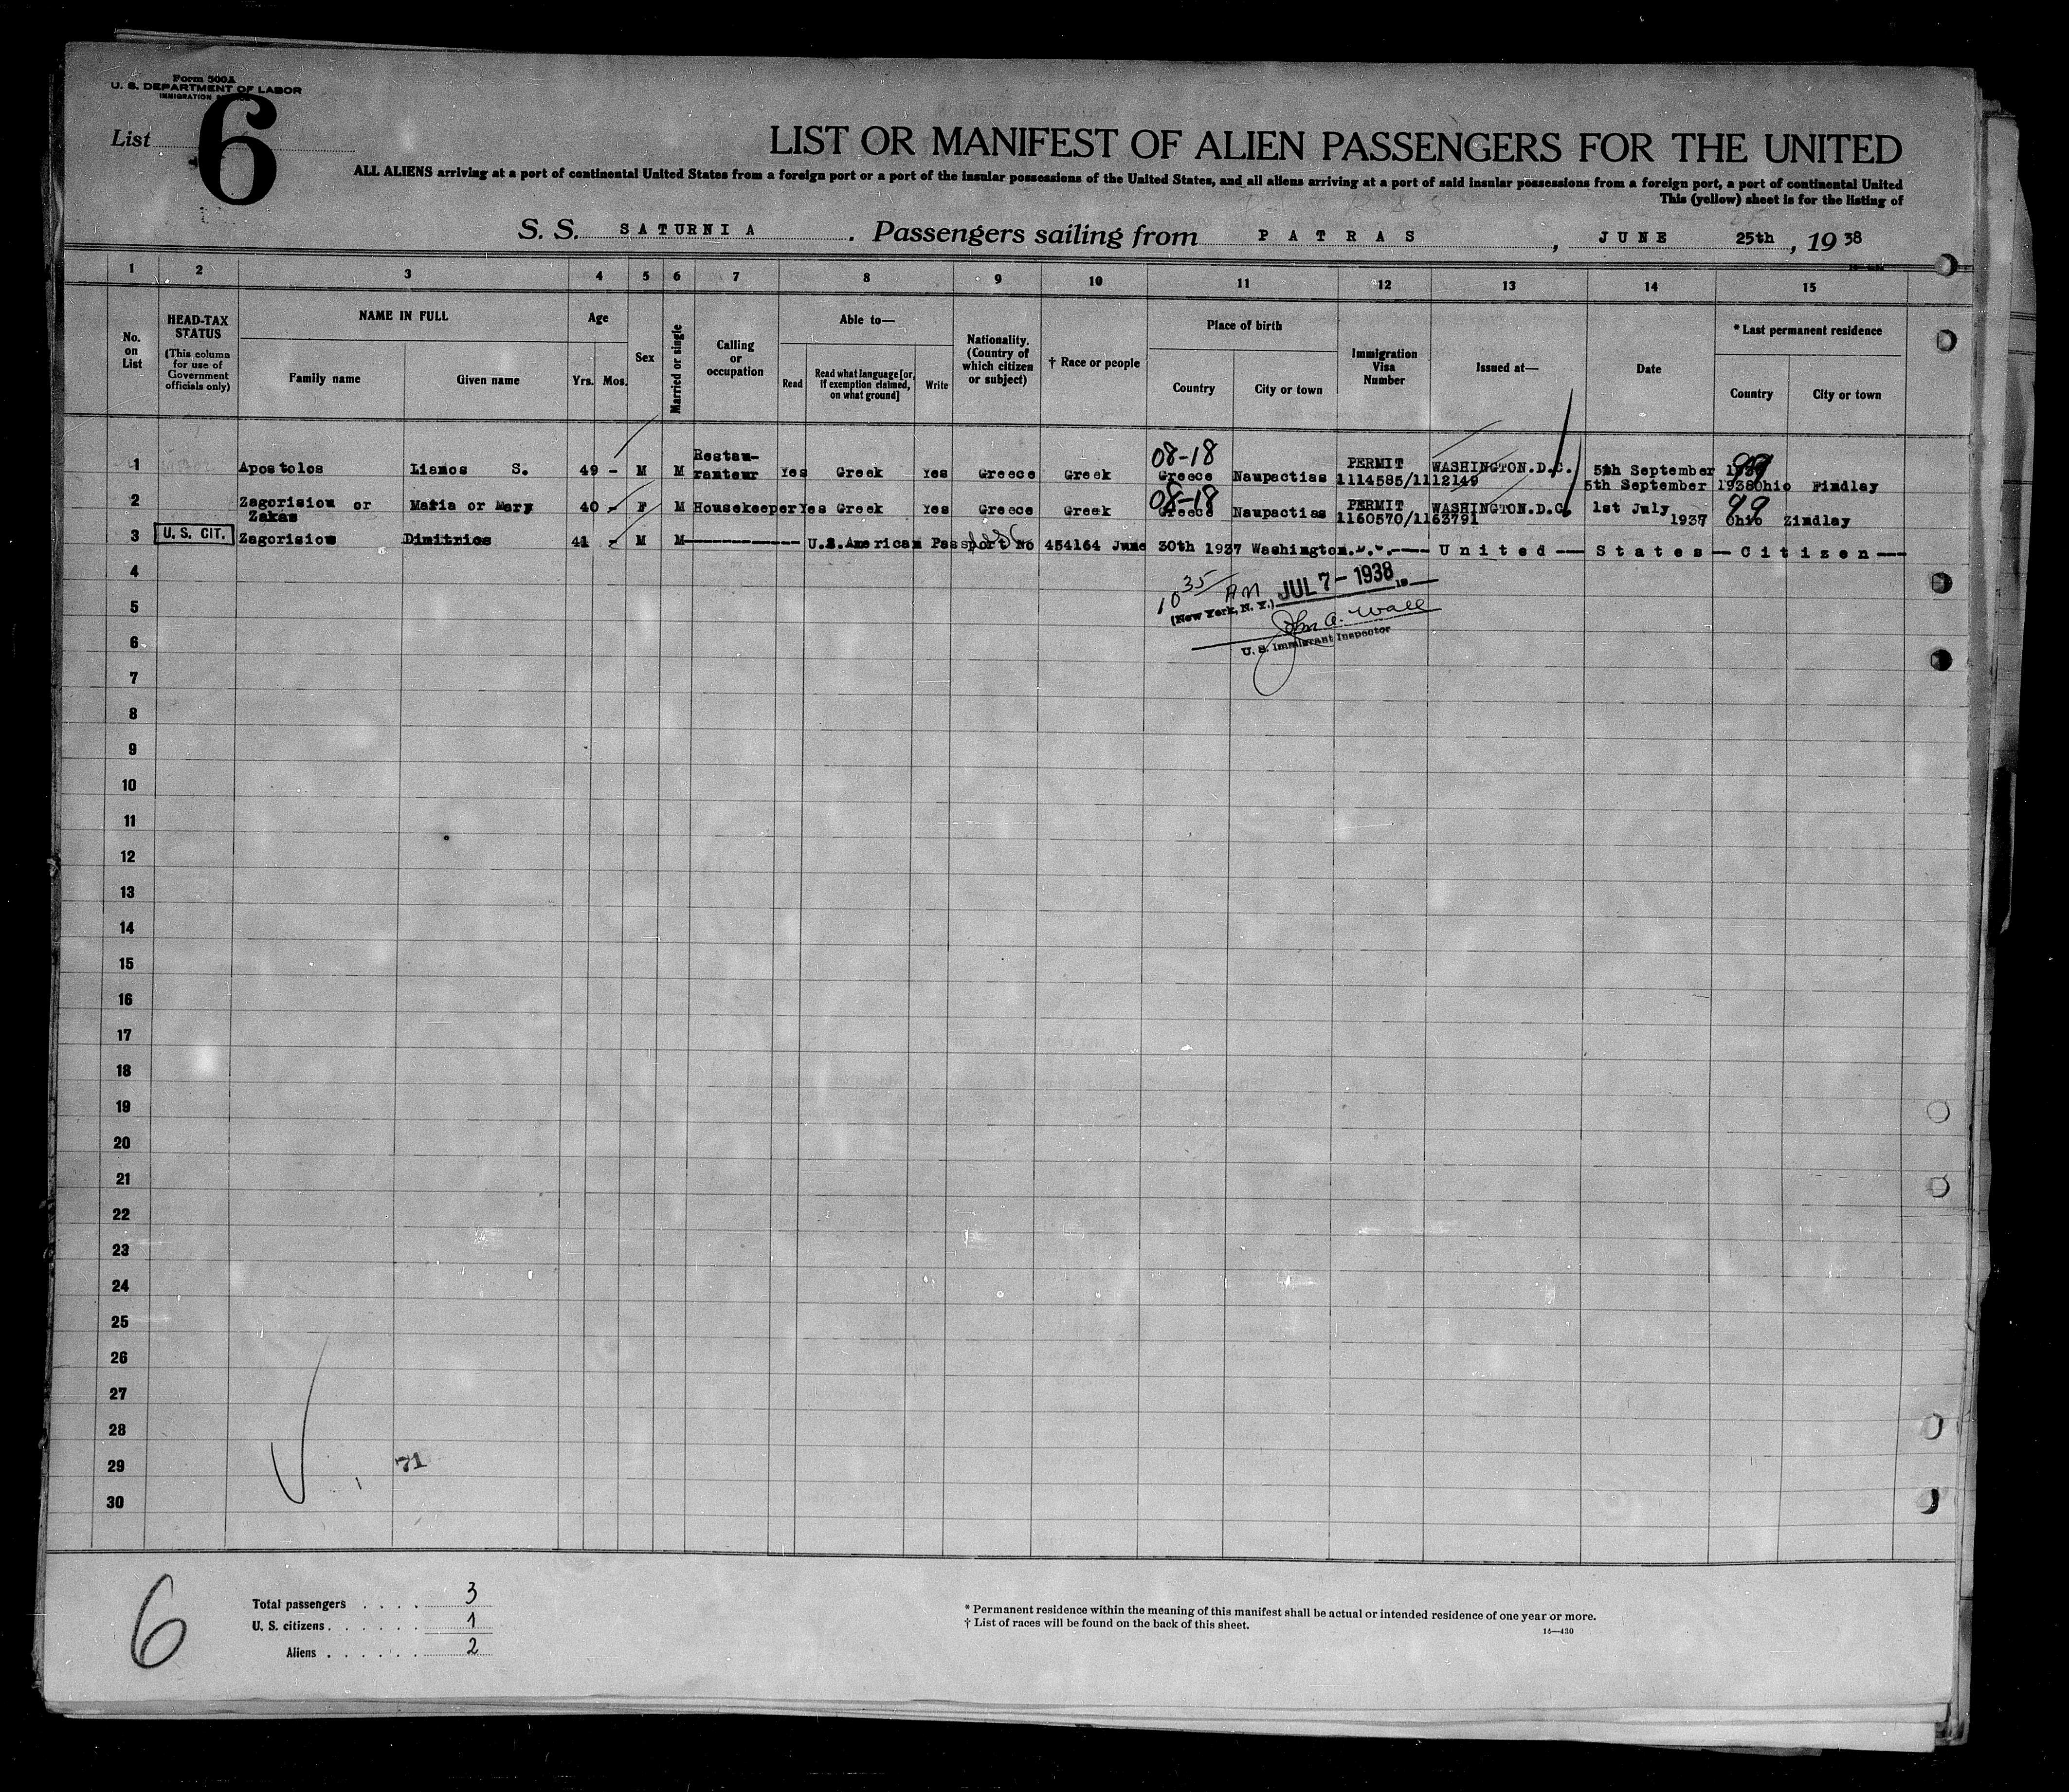 Form 500A
U. S. DEPARTMENT OF LABOR
IMMIGRATION
List 6
LIST OR MANIFEST OF ALIEN PASSENGERS FOR THE UNITED
ALL ALIENS arriving at a port of continental United States from a foreign port or a port of the insular possessions of the United States, and all aliens arriving at a port of said insular possessions from a foreign port, a port of continental United
This (yellow) sheet is for the listing of
S. S. SATURNIA . Passengers sailing from PATRAS , JUNE 25th , 19 38
1 2 3 4 5 6 7 8 9 10 11 12 13 14 15
No. on List
HEAD-TAX STATUS
(This column for use of Government officials only)
NAME IN FULL
Family name
Given name
Age
Yrs. Mos.
Sex
Married or single
Calling or occupation
Able to—
Read
Read what language [or, if exemption claimed, on what ground]
Write
Nationality. (Country of which citizen or subject)
† Race or people
Place of birth
Country
City or town
Immigration Visa Number
Issued at—
Date
* Last permanent residence
Country
City or town
08-18
1 Apostolos Liamos S. 49 - M M Restau-ranteur Yes Greek Yes Greece Greek Greece Naupactias PERMIT 1114585/1112149 WASHINGTON.D.C. 5th September
5th September 1938 Ohio Findlay
08-18 99
2 Zagorisiou or Zakas Maria or Mary 40 - F M Housekeeper Yes Greek Yes Greece Greek Greece Naupactias PERMIT 1160570/1163791 WASHINGTON.D.C. 1st July 1937 Ohio Zindlay
3 U. S. CIT. Zagorisiou Dimitrios 41 - M M ---------- U.S.American Passport No 454164 June 30th 1927 Washington.-.-.---- United -- States -- Citizen ---
4
10 35 AM JUL 7 - 1938 19
5
(New York, N. Y.)
John A. Wall
6
U. S. Immigrant Inspector
7
8
9
10
11
12
13
14
15
16
17
18
19
20
21
22
23
24
25
26
27
28
29
71
30
6
Total passengers . . . . 3
U. S. citizens . . . . . . 1
Aliens . . . . . . 2
* Permanent residence within the meaning of this manifest shall be actual or intended residence of one year or more.
† List of races will be found on the back of this sheet.
14—430